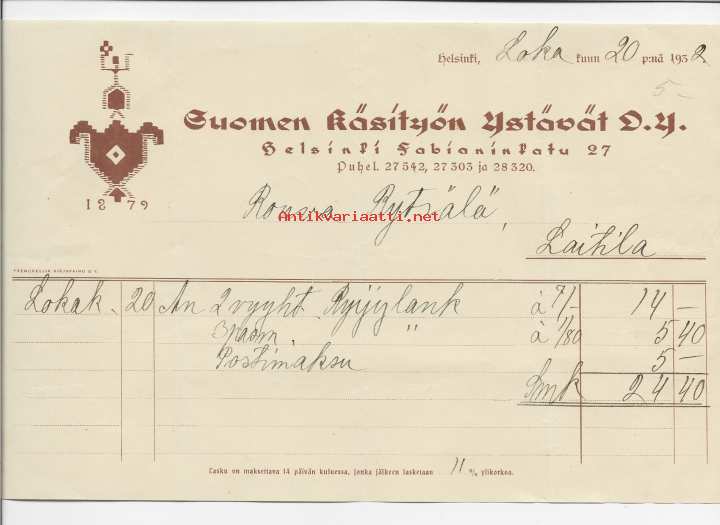 Helsinki, Loka kuun 20 p:nä 1932
5 —
Suomen Käsityön Ystävät O.Y.
Helsinki Fabianinkatu 27
Puhel. 27 542, 27 303 ja 28 320.
1879
Rouva Rytsälä,
Antikvariaatti.net
Laitila
FRENCKELLIN KIRJAPAINO O.Y.
Lokak. 20 An 2 vyyht. Ryijylank à 7/- 14 —
3 pasm. " à 1/80 5 40
Postimaksu 5 —
Smk 24 40
Lasku on maksettava 14 päivän kuluessa, jonka jälkeen lasketaan 11 % ylikorkoa.